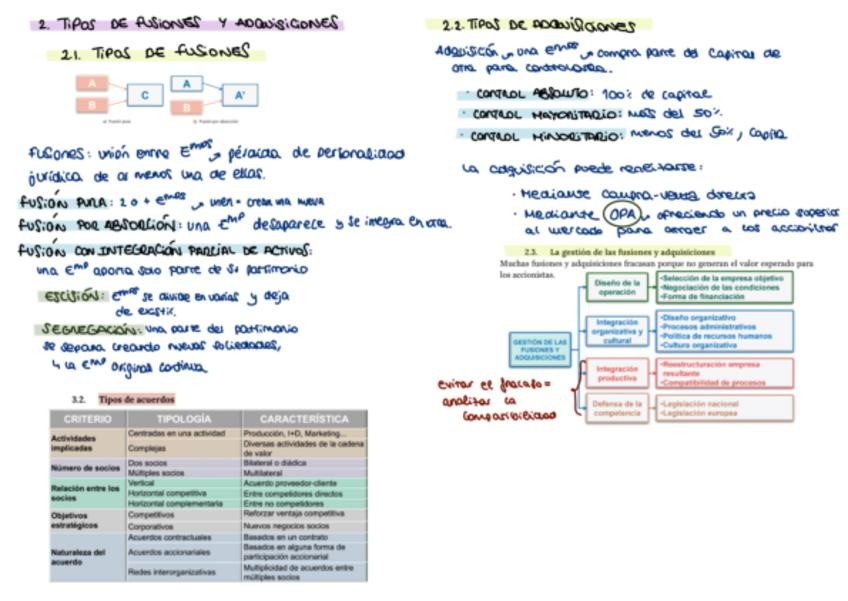 2. TIPOS DE FUSIONES Y ADQUISICIONES
2.1. TIPOS DE FUSIONES
A
B
C
A
B
A'
a) Fusión pura
b) Fusión por absorción
FUSIONES: unión entre Emps pérdida de personalidad
jurídica de al menos una de ellas.
FUSIÓN PURA: 2 o + emps unen = crean una nueva
FUSIÓN POR ABSORCIÓN: una Emp desaparece y se integra en otra
FUSIÓN CON INTEGRACIÓN PARCIAL DE ACTIVOS:
una Emp aporta solo parte de su patrimonio
ESCISIÓN: emps se divide en varias y deja
de existir.
SEGREGACIÓN: una parte del patrimonio
se separa creando nuevas sociedades,
la emp original continua
3.2. Tipos de acuerdos
CRITERIO TIPOLOGÍA CARACTERÍSTICA
Actividades implicadas
Centradas en una actividad Producción, I+D, Marketing...
Complejas Diversas actividades de la cadena de valor
Número de socios
Dos socios Bilateral o diádica
Múltiples socios Multilateral
Relación entre los socios
Vertical Acuerdo proveedor-cliente
Horizontal competitiva Entre competidores directos
Horizontal complementaria Entre no competidores
Objetivos estratégicos
Competitivos Reforzar ventaja competitiva
Corporativos Nuevos negocios socios
Naturaleza del acuerdo
Acuerdos contractuales Basados en un contrato
Acuerdos accionariales Basados en alguna forma de participación accionarial
Redes interorganizativas Multiplicidad de acuerdos entre múltiples socios
2.2. TIPOS DE ADQUISICIONES
Adquisición una emps compra parte del capital de
otra para controlarla.
· CONTROL ABSOLUTO: 100% de capital
· CONTROL MAYORITARIO: más del 50%
· CONTROL MINORITARIO: menos del 50%, capital
La adquisición puede realizarse:
· Mediante compra-venta directa
· Mediante OPA ofreciendo un precio superior
al mercado para atraer a los accionistas
2.3. La gestión de las fusiones y adquisiciones
Muchas fusiones y adquisiciones fracasan porque no generan el valor esperado para
los accionistas.
GESTIÓN DE LAS FUSIONES Y ADQUISICIONES
Diseño de la operación
•Selección de la empresa objetivo
•Negociación de las condiciones
•Forma de financiación
Integración organizativa y cultural
•Diseño organizativo
•Procesos administrativos
•Política de recursos humanos
•Cultura organizativa
Integración productiva
•Reestructuración empresa resultante
•Compatibilidad de procesos
Defensa de la competencia
•Legislación nacional
•Legislación europea
evitar el fracaso =
analizar la
compatibilidad